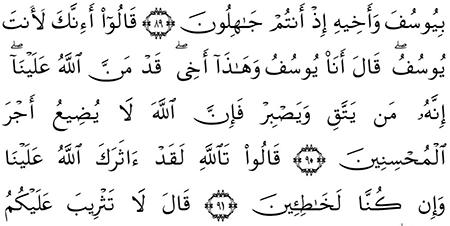 بِيُوسُفَ وَأَخِيهِ إِذْ أَنتُمْ جَٰهِلُونَ ٨٩ قَالُوٓا۟ أَءِنَّكَ لَأَنتَ
يُوسُفُ ۖ قَالَ أَنَا۠ يُوسُفُ وَهَٰذَآ أَخِى ۖ قَدْ مَنَّ ٱللَّهُ عَلَيْنَآ ۖ
إِنَّهُۥ مَن يَتَّقِ وَيَصْبِرْ فَإِنَّ ٱللَّهَ لَا يُضِيعُ أَجْرَ
ٱلْمُحْسِنِينَ ٩٠ قَالُوا۟ تَٱللَّهِ لَقَدْ ءَاثَرَكَ ٱللَّهُ عَلَيْنَا
وَإِن كُنَّا لَخَٰطِـِٔينَ ٩١ قَالَ لَا تَثْرِيبَ عَلَيْكُمُ